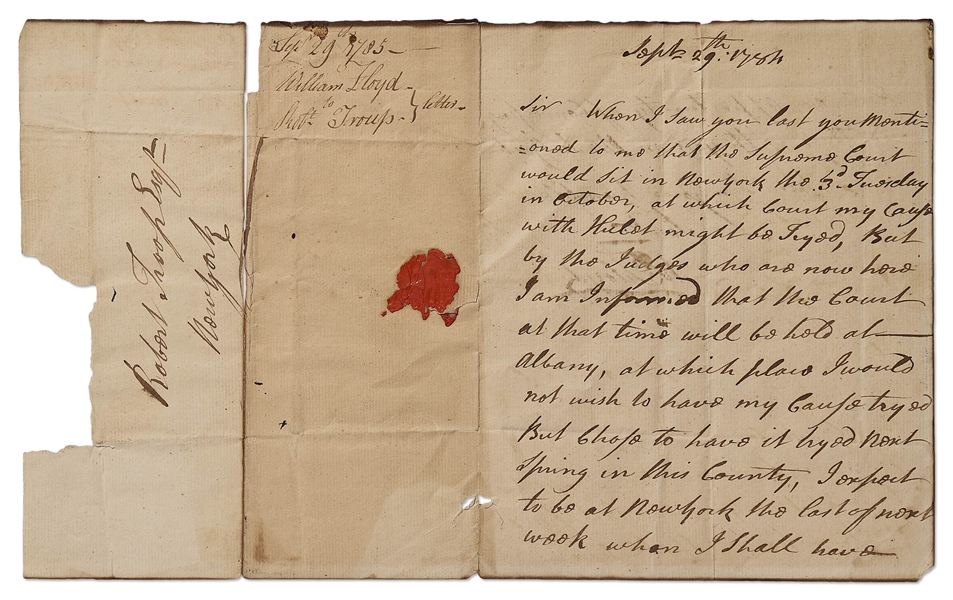 Robert Troop Esqr
Newyork
Sepr 29th 1785 —
William Lloyd —
to
Robt. Troup — } letter —
Septr 29th: 1784
Sir When I Saw you last you Menti=
=oned to me that the Supreme Court
would Sit in Newyork the 3d. Tuesday
in October, at which Court my Cause
with Hulet might be Tryed, But
by the Judges who are now here
I am Informed that the Court
at that time will be held at —
Albany, at which place I would
not wish to have my Cause tryed
But Chose to have it tryed Next
Spring in this County, I expect
to be at Newyork the last of next
week when I Shall have —